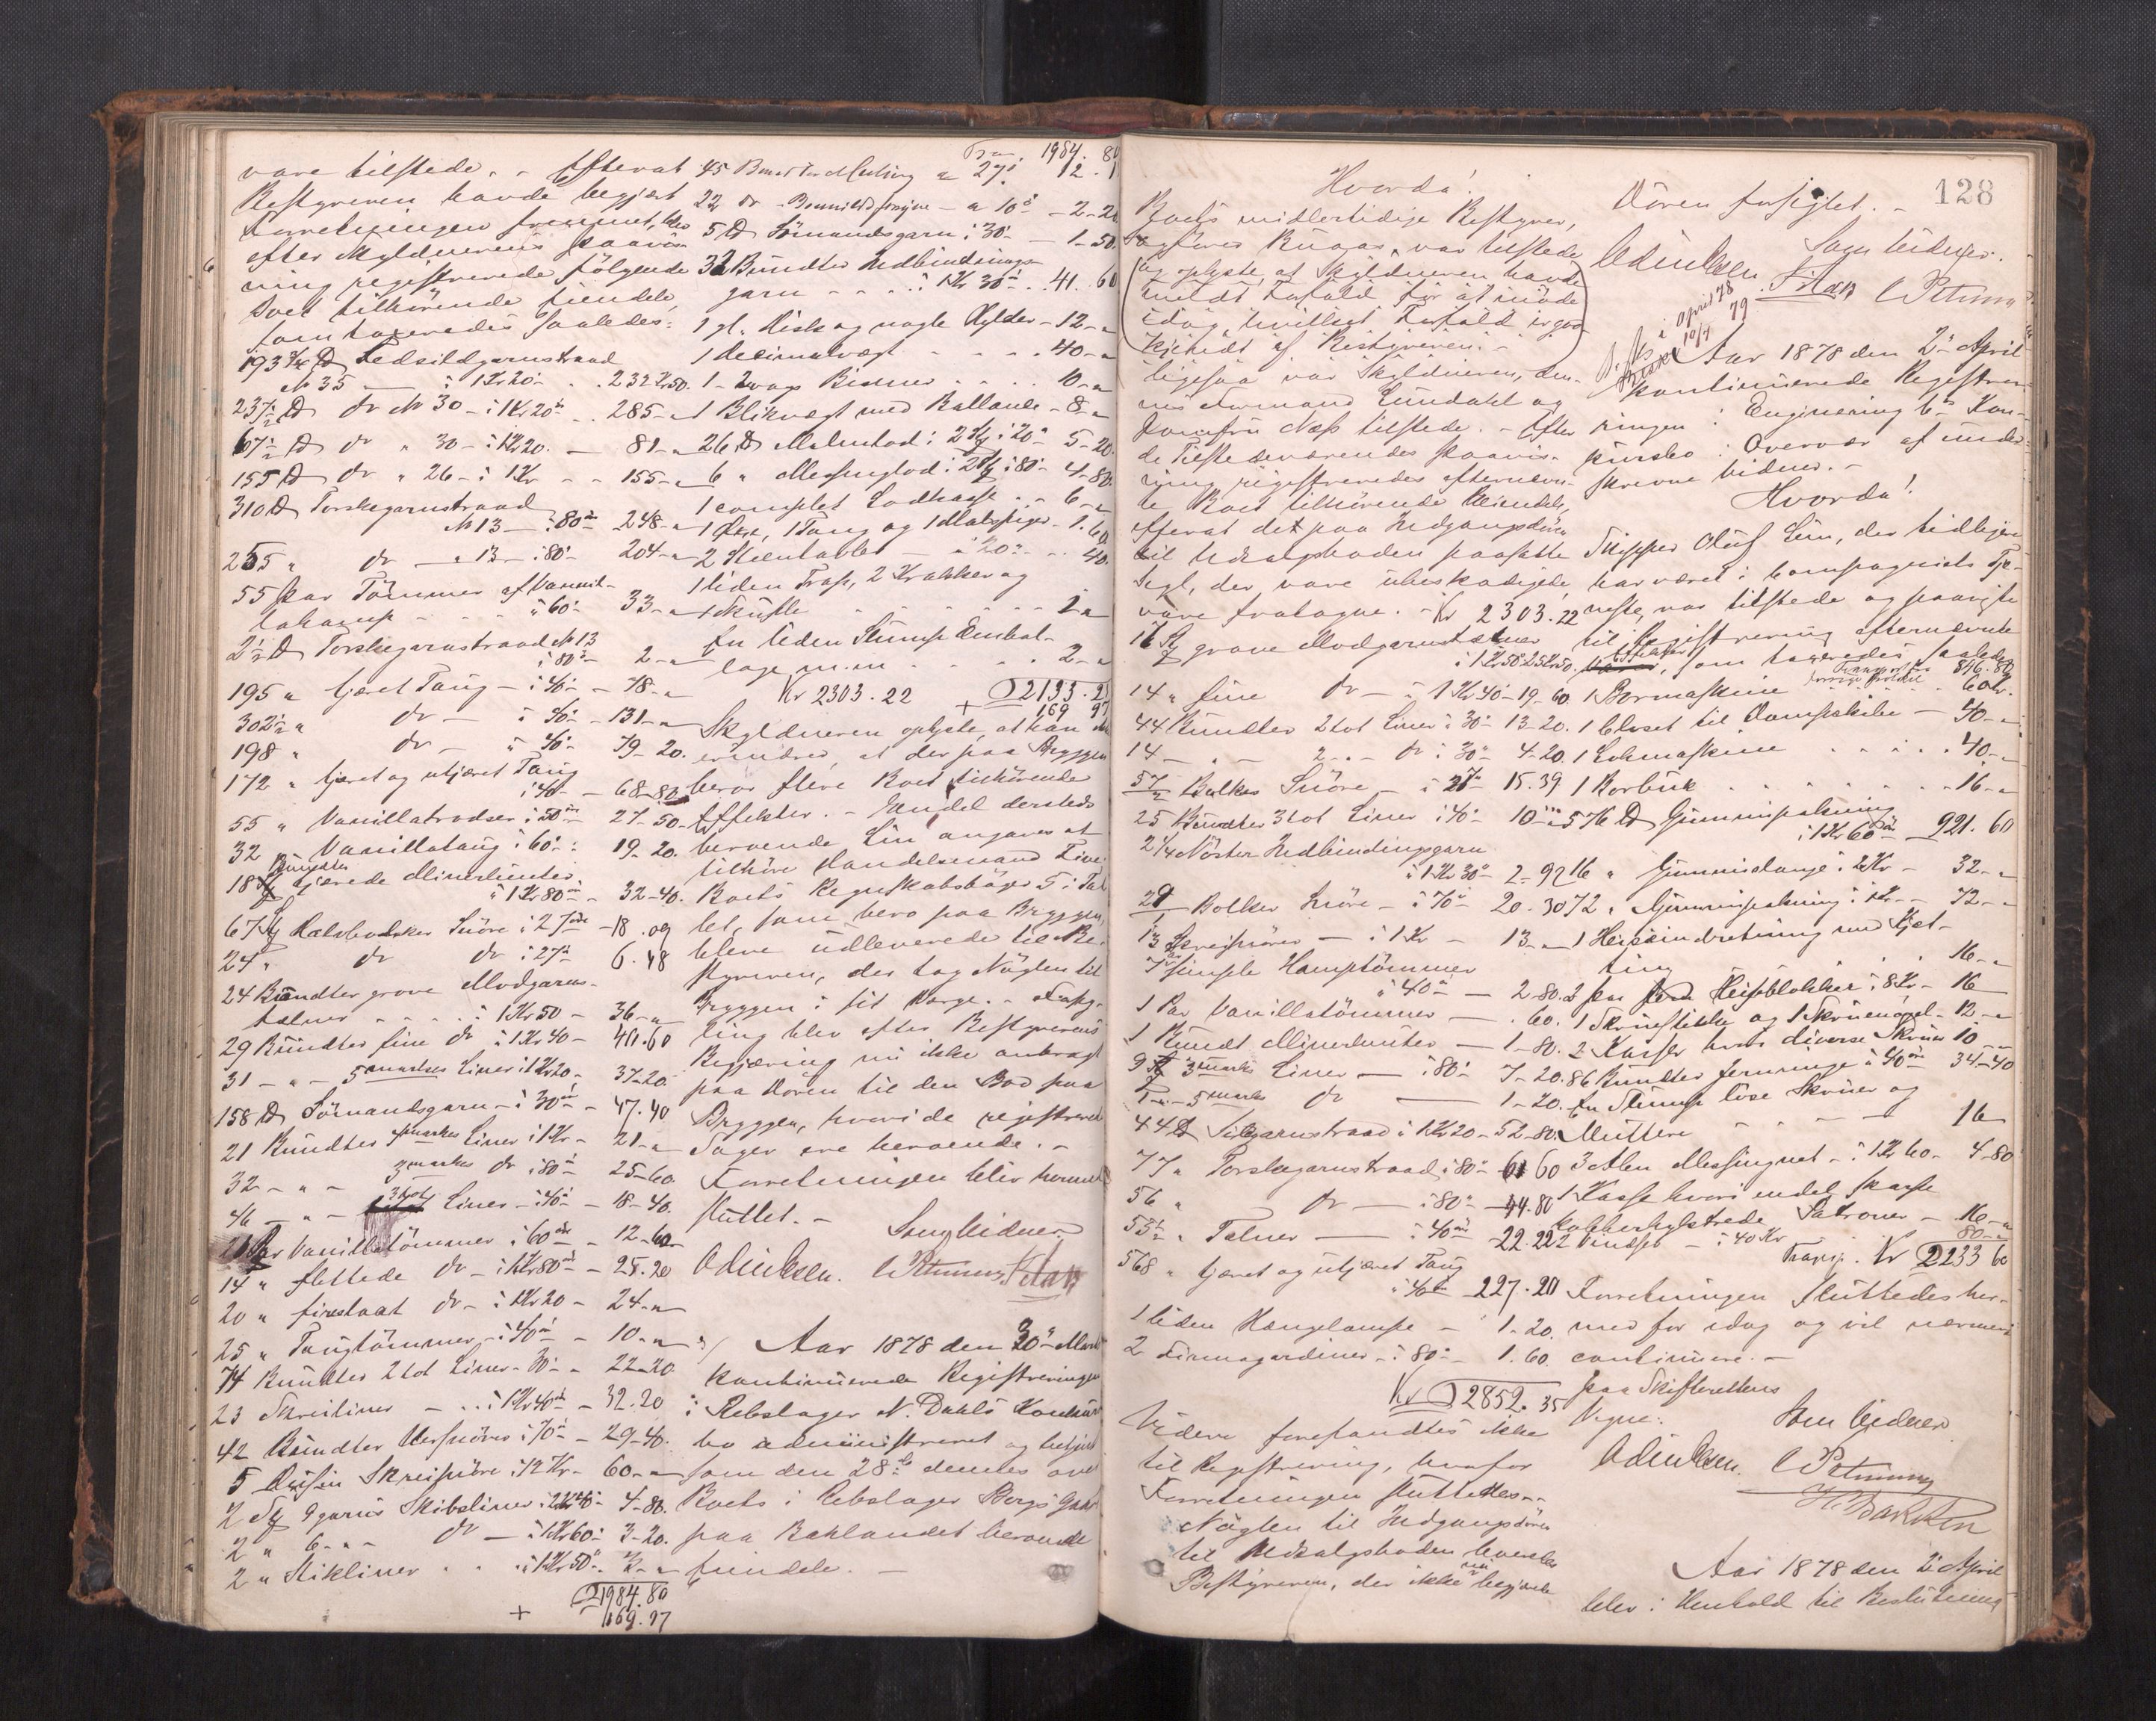 vare tilstede. - Efterat
Bestyreren havde begjært
Forretningen fremmet, blev
efter Skyldnerens Paavis-
ning registrerede følgende
Boet tilhørende Eiendele,
som taxeredes saaledes:
193 3/4 ℔ Fedsildgarnstraad
№ 35 — à 1 Kr 20 - 232 Kr 50.
237 1/2 ℔ do № 30 - à 1 Kr 20 - 285 - "
67 1/2 ℔ do " 30 - à 1 Kr 20. — 81 - "
155 ℔ do " 26 - à 1 Kr - - 155 - "
310 ℔ Torskegarnstraad
№ 13 — à 80 - 248 - "
255 " do — " 13 - à 80 - 204 - "
55 Par Tömmer af Vanil-
lahamp - - - à 60 - 33 - "
2 1/2 ℔ Torskegarnstraad № 13
à 80 - 2 - "
195 " tjæret Taug - à 40 - 78 - "
302 1/2 " do - à 40 - 131 - "
198 " do - à 40 - 79 - 20.
172 " tjæret og utjæret Taug
à 40 - 68 - 80
55 " Vanillatrodser à 50 - 27 - 50
32 " Vanillataug à 60 - 19 - 20.
18 Bundter tjærede Minerlunter
à 1 Kr 80 - 32 - 40.
67 Snöre à 27 - 18.09
24 " do do à 27 6.48
24 Bundter grove Modgarns-
telner - - - à 1 Kr 50 - 36 - "
29 Bundter fine do à 1 Kr 40 - 40.60
31 - " - 5 markes Liner à 1 Kr 20 - 37 - 20
158 ℔ Sömandsgarn - à 30 - 47.40
21 Bundter 4 markes Liner à 1 Kr - 21 - "
32 - " - 3 markes do à 80 - 25 - 60.
46 - " - 3 tot Liner - à 40 - 18 - 40.
21 Par Vanillatömmer à 60 - 12 - 60
14 " flettede do - à 1 Kr 80 - 25.20
20 " fireslaat do - à 1 Kr 20 - 24 - "
25 " Taugtömmer - à 40 - 10 - "
74 Bundter 2 tot Liner - 30 - 22 - 20
23 Skreiliner - - à 1 Kr 40 - 32.20
42 Bundter à 70 - 29 - 40.
5 Dusin Skreisnöre à 12 Kr - 60 - "
2 9 garns Skibsliner à 2 Kr 40 - 4 - 80.
2 " 6 - " - do - à 1 Kr 60 - 3 - 20.
2 " Stikliner - - à 1 Kr 50
1984.80
+ 169.97
1984.80
45 à 27 12 - 1
22 do - à 10 - 2 - 20
5 ℔ Sömandsgarn à 30 - 1 - 50.
32 Bundter Indbindings-
garn - - - à 1 Kr 30 - 41.60
1 gl. Disk og nogle Hylder - 12 - "
1 Decimalvægt - - - 40 - "
1 Bismer - - - 10 - "
1 Blikvægt med Ballance - 8 - "
26 ℔ à 20 5 - 20.
6 " Messinglod à 80 - 4 - 80.
1 complet Lodkasse - - 6 - "
1 Öxe, 1 Tang og 1 - 1.60
2 - à 20 - 40.
1 liden Trap, 2 Krakker og
1 Skuffe - - - - 1 - "
En liden Slump Embal-
lage m.m - - - 2 - "
Kr 2303.22 + 2133.25
169 97
Skyldneren oplyste, at han
erindrer, at der paa Bryggen
beror flere Boet tilhörende
Effekter. - Endel dersteds
beroende Lin angaves at
tilhöre Handelsmand
Boets Regnskabsböger 5 i Tal-
let, som bero paa Bryggen,
bleve udleverede til Be-
styreren, der tog Nöglen til
Bryggen i sit Værge. - Forseg-
ling blev efter Bestyrerens
Begjæring nu ikke anbragt
paa Dören til den Bod paa
Bryggen, hvori de registrerede
Sager ere beroende. -
Forretningen blev hermed
sluttet. -
Som Vidner
Aar 1878 den 30 Marts
kontinuerede Registreringen
i Rebslager N. Dahls Konkurs-
bo administreret og betjent
som den 28de dennes over
Boets i Rebslager Borgs Gaard
paa Baklandet beroende
Eiendele. -
128
Hvorda!
Boets midlertidige Bestyrer,
Sagförer Bugge, var tilstede
og oplyste, at Skyldneren havde
meldt Forfald for at möde
idag, hvilket Forfald er god-
kjendt af Bestyreren. -
ligesaa var Skyldneren, den-
nes Formand Lundahl og
Jomfru Næss tilstede. - Efter
de Tilstedeværendes Paavis-
ning registreredes efternævn-
te Boet tilhörende Eiendele,
efterat det paa Indgangsdören
til Udsalgsboden paasatte
Segl, der vare ubeskadigede
vare fratagne. - Kr 2303.22
17 grove Modgarnstelner
à 1 Kr 50 25 Kr 50.
14 " fine do - à 1 Kr 40 - 19.60
44 Bundter 2 tot Liner à 30 - 13 - 20.
14 - " - 2 - " - do à 30 - 4 - 20.
57 Bolker Snöre - à 27 15.39
25 Bundter 3 tot Liner à 40 - 10 - "
2 1/4 Nöster Indbindingsgarn
à 1 Kr 30 - 2 - 92
29 Bolker Snöre - à 70 20.30
13 Skreisnörer — à 1 Kr - 13 - "
7 Par simple Hamptömmer
à 40 — 2 - 80.
1 Par Vanillatömmer — . 60.
1 Bundt Minerlunter — 1 - 80.
9 3 marks Liner — à 80 7 - 20.
1 - " - 5 marks do — 1 - 20.
44 ℔ Sildgarnstraad à 1 Kr 20 - 52 - 80.
77 " Torskegarnstraad à 80 - 61 60
56 " do — à 80 - 44.80
53 1/2 " Telner — à 40 - 22.22
568 " tjæret og utjæret Taug
à 40 227.20
1 liden Hængelampe - 1 - 20.
2 Firmagardiner - à 80 - 1.60
Kr 2852.35
Videre forefandtes ikke
til Registrering, hvorfor
Forretningen sluttedes. -
Nöglen til Indgangsdören
til Udsalgsboden leveredes
Bestyreren, der ikke nu begjærede
Dören forseglet. -
Som Vidner.
Aar 1878 den 2 April
kontinuerede Registrer-
ingen i Enginering Co Kon-
kursbo i Overvær af under-
skrevne Vidner. -
Hvorda!
Skipper Oluf Lein, der tidligere
har været i Kompagniets Tje-
neste, var tilstede og paaviste
til Registrering efternævnte
Effekter, som taxeredes saaledes
896.80
1 Bormaskine - - - 60 Kr.
1 Closet til Dampskibe - 40 - "
1 Lokmaskine - - - 40 - "
1 Borbuk - - - 16 - "
576 ℔ Gummipakning
à 1 Kr 60 921.60
16 " Gummislange à 2 Kr - 32 - "
72 " Gummipakning à 1 Kr - 72 - "
1 Heiseindretning med Kjet-
ting - - - 16 - "
2 Par Heiseblokker à 8 Kr - 16
1 Skruestikke og 1 Skruenögel - 12 - "
2 Kasser hvori diverse Skruer 10 - "
86 Bundter Jernringe à 40 34 - 40
En Slump löse Skruer og
Muttere - - - 16
3 Alen Messingnet - à 1 Kr 60 - 4 - 80
1 Kasse hvori endel skarpe
Kobberhylstrede Patroner - 16 - "
2 Vindspil - à 40 Kr 80 - "
Transp. Kr 2233 60
Forretningen sluttedes her-
med for idag og vil nærmere
continuere. -
Paa Skifterettens
Vegne:
Som Vidner
Aar 1878 den 2 April
blev i Henhold til Beslutning